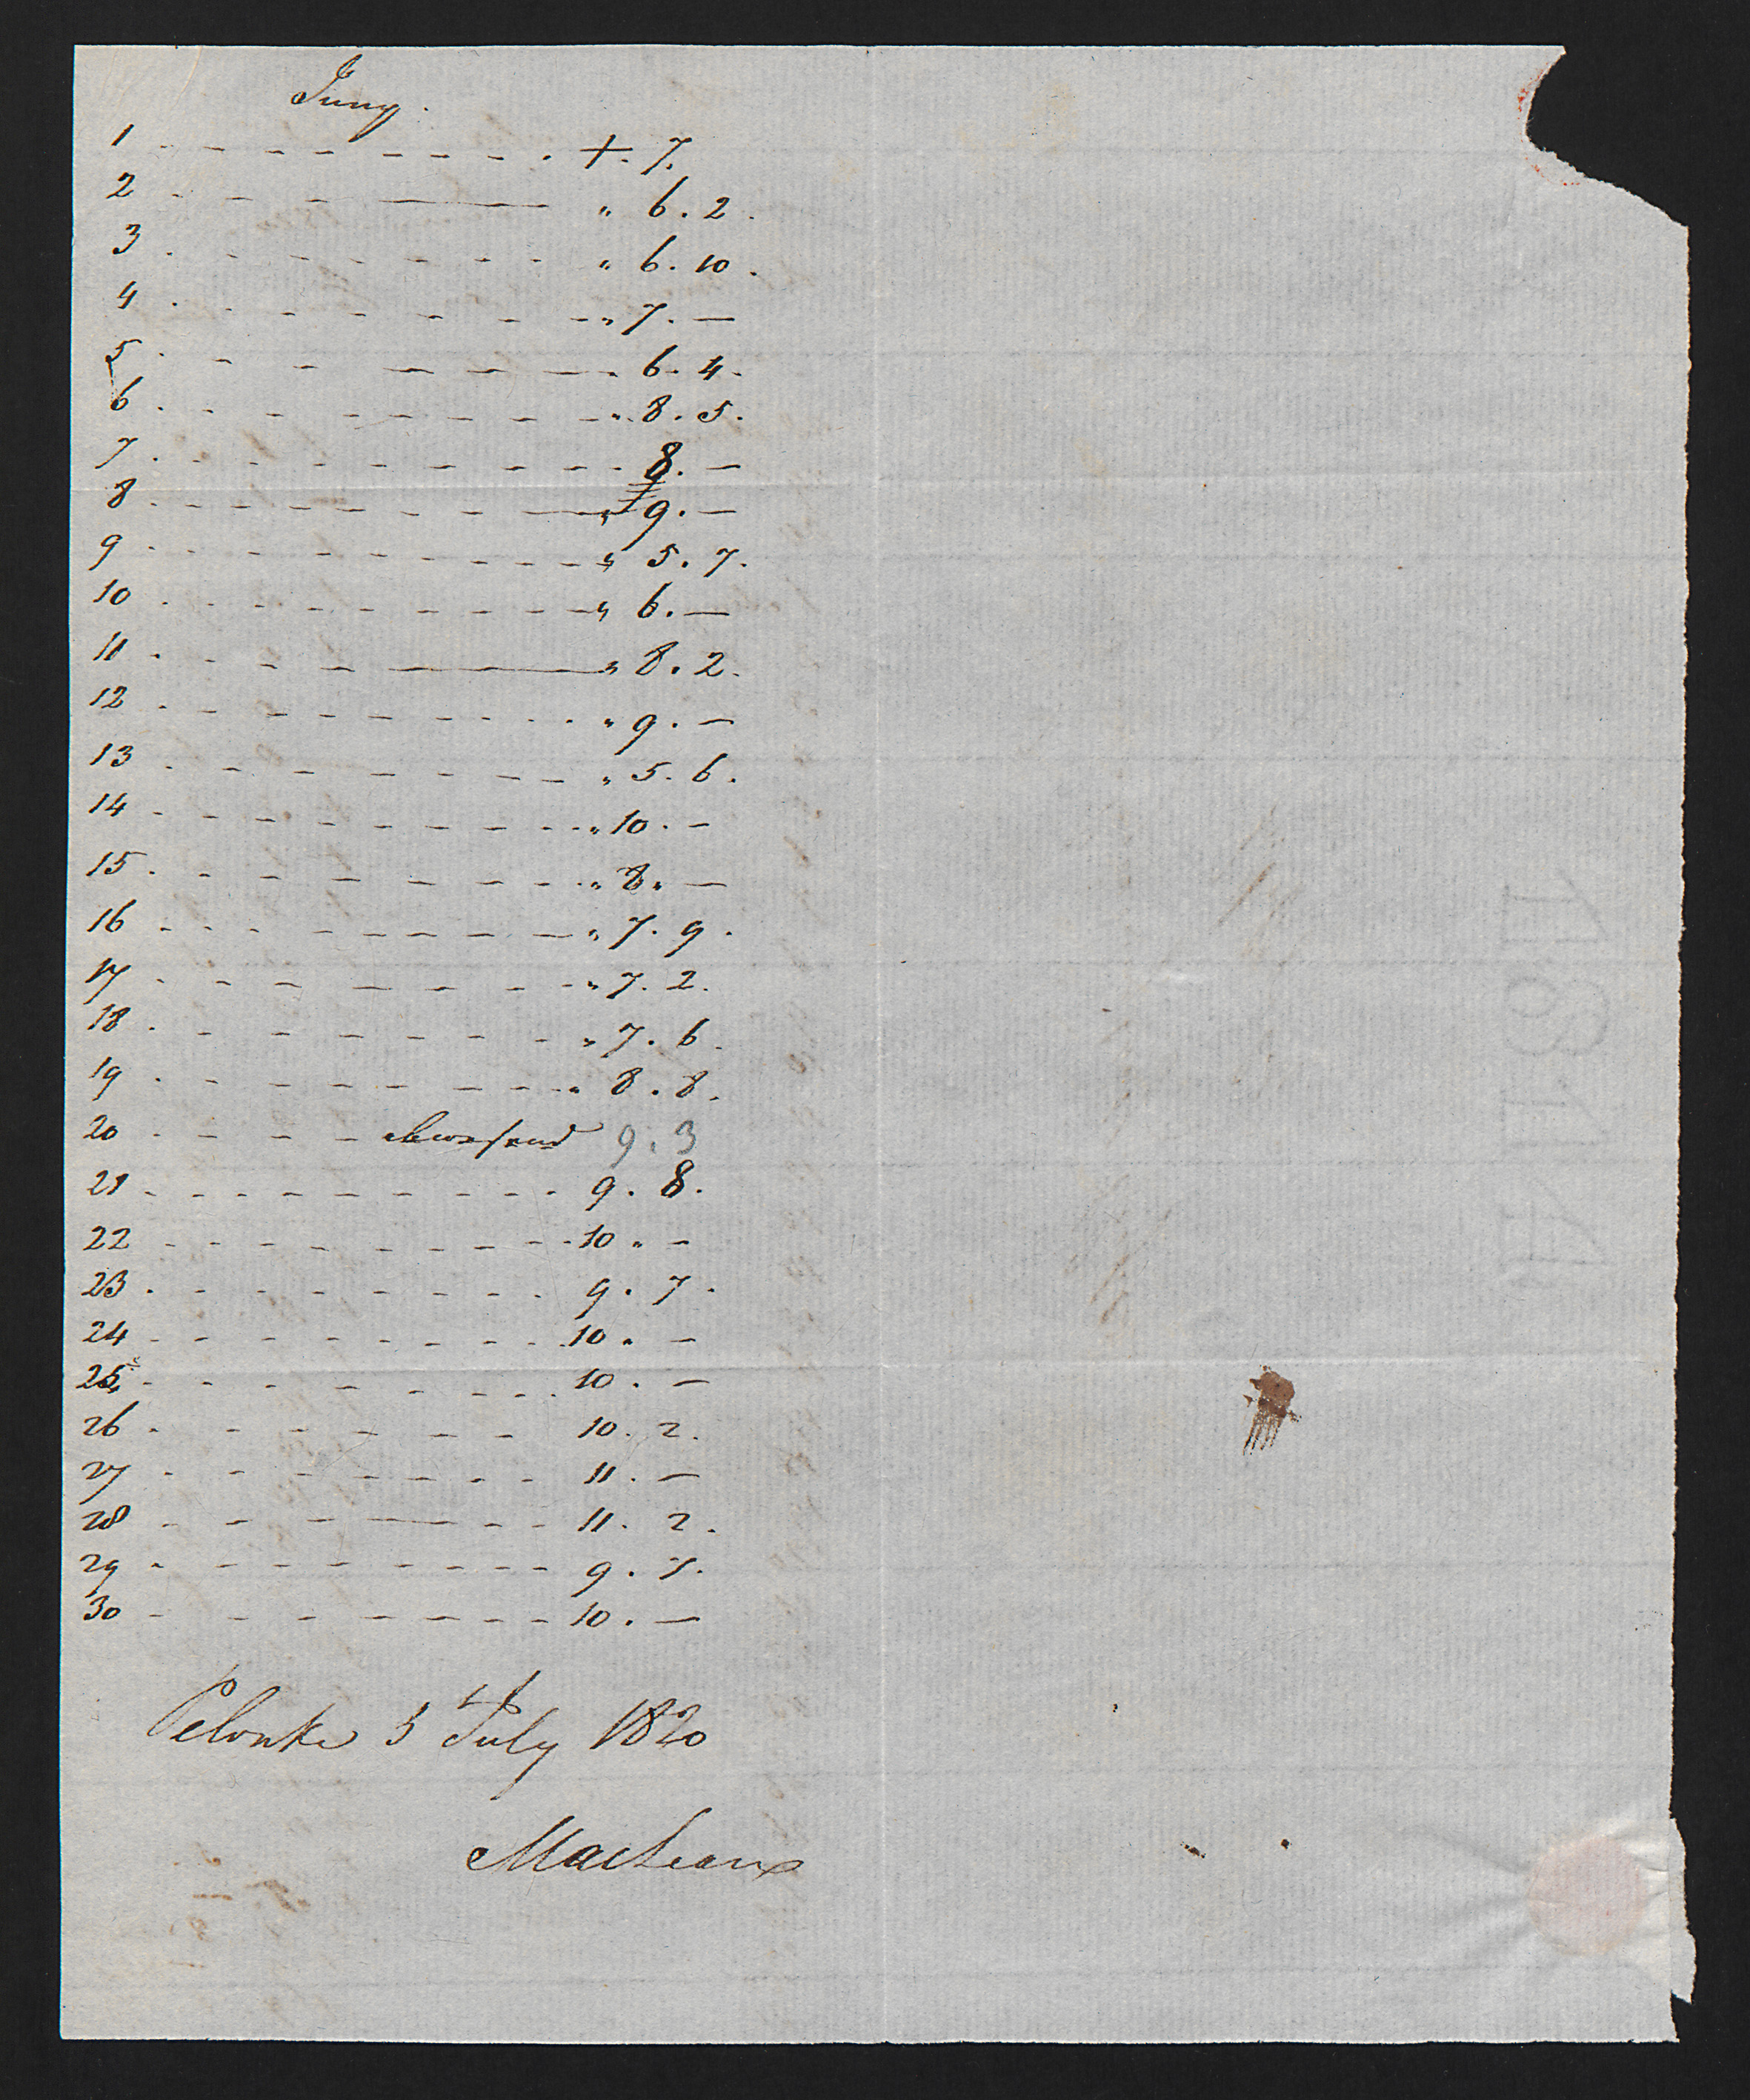 Juny.
1 - - - - - - - - . + . 7.
2 - - - — „ 6 . 2 .
3 . - - - - - - - „ 6 . 10 .
4 . - - - - - - - „ 7 . —
5 . - - - - - . 6 . 4 .
6 . - - - - - - - „ 8 . 5 .
7 . - - - - - - - - 8 . —
8 . - - - - - - - „ 9 . —
9 . - - - - - - - - „ 5 . 7 .
10 . - - - - - - - - „ 6 . —
11 . - - - — „ 8 . 2 .
12 . - - - - - - - . „ 9 . —
13 . - - - - - - - „ 5 . 6 .
14 - - - - - - - - - „ 10 . —
15 . - - - - - - - - „ 8 „ —
16 . - - - - - - - - „ 7 . 9 .
17 . - - - - - - - „ 7 . 2 .
18 . - - - - - - - „ 7 . 6 .
19 . - - - - - - - - „ 8 . 8 .
20 . - - - abwesend 9 . 3
21 . - - - - - - - - - 9 . 8 .
22 - - - - - - - - - 10 „ —
23 . - - - - - - - - 9 . 7 .
24 - - - - - - - - - 10 „ —
25 - - - - - - - - . 10 . —
26 . - - - - - - 10 . 2 .
27 . - - - - - - - - 11 . —
28 - - - — - - 11 . 2 .
29 - - - - - - - - - 9 . 7 .
30 - - - - - - - - 10 . —
Pelonke 3 July 1820
MacLean